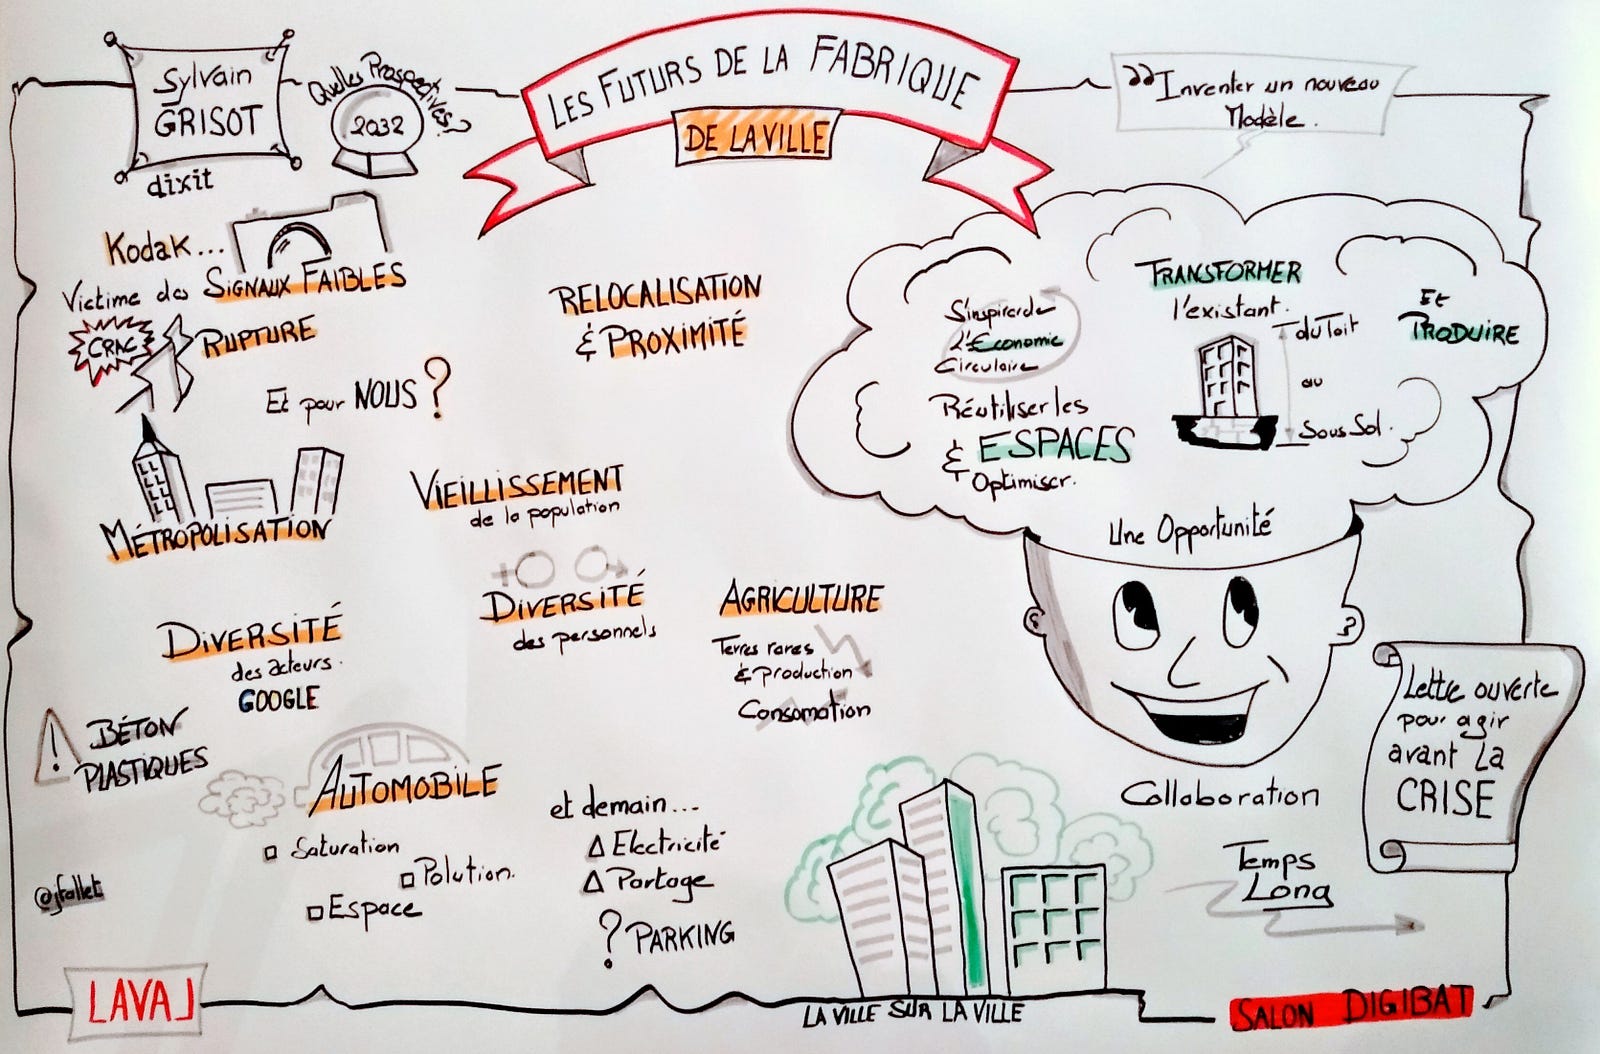 Sylvain
GRISOT
dixit
Quelles Prospectives?
2032
LES FUTURS DE LA FABRIQUE
DE LA VILLE
Inventer un nouveau
Modèle.
Kodak...
Victime des SIGNAUX FAIBLES
CRAC
RUPTURE
Et pour NOUS ?
RELOCALISATION
& PROXIMITÉ
S'inspirer de
L'Économie
Circulaire
Réutiliser les
& ESPACES
Optimiser.
TRANSFORMER
l'existant.
du Toit
au
Sous Sol.
Et
PRODUIRE
Une Opportunité
MÉTROPOLISATION
VIEILLISSEMENT
de la population
DIVERSITÉ
des personnels
AGRICULTURE
Terres rares
& Production
Consomation
DIVERSITÉ
des acteurs.
GOOGLE
! BÉTON
PLASTIQUES
AUTOMOBILE
□ Saturation
□ Polution.
□ Espace
et demain...
△ Electricité
△ Partage
? PARKING
Collaboration
Temps
Long
Lettre ouverte
pour agir
avant La
CRISE
@jfallet
LAVAL
LA VILLE SUR LA VILLE
SALON DIGIBAT